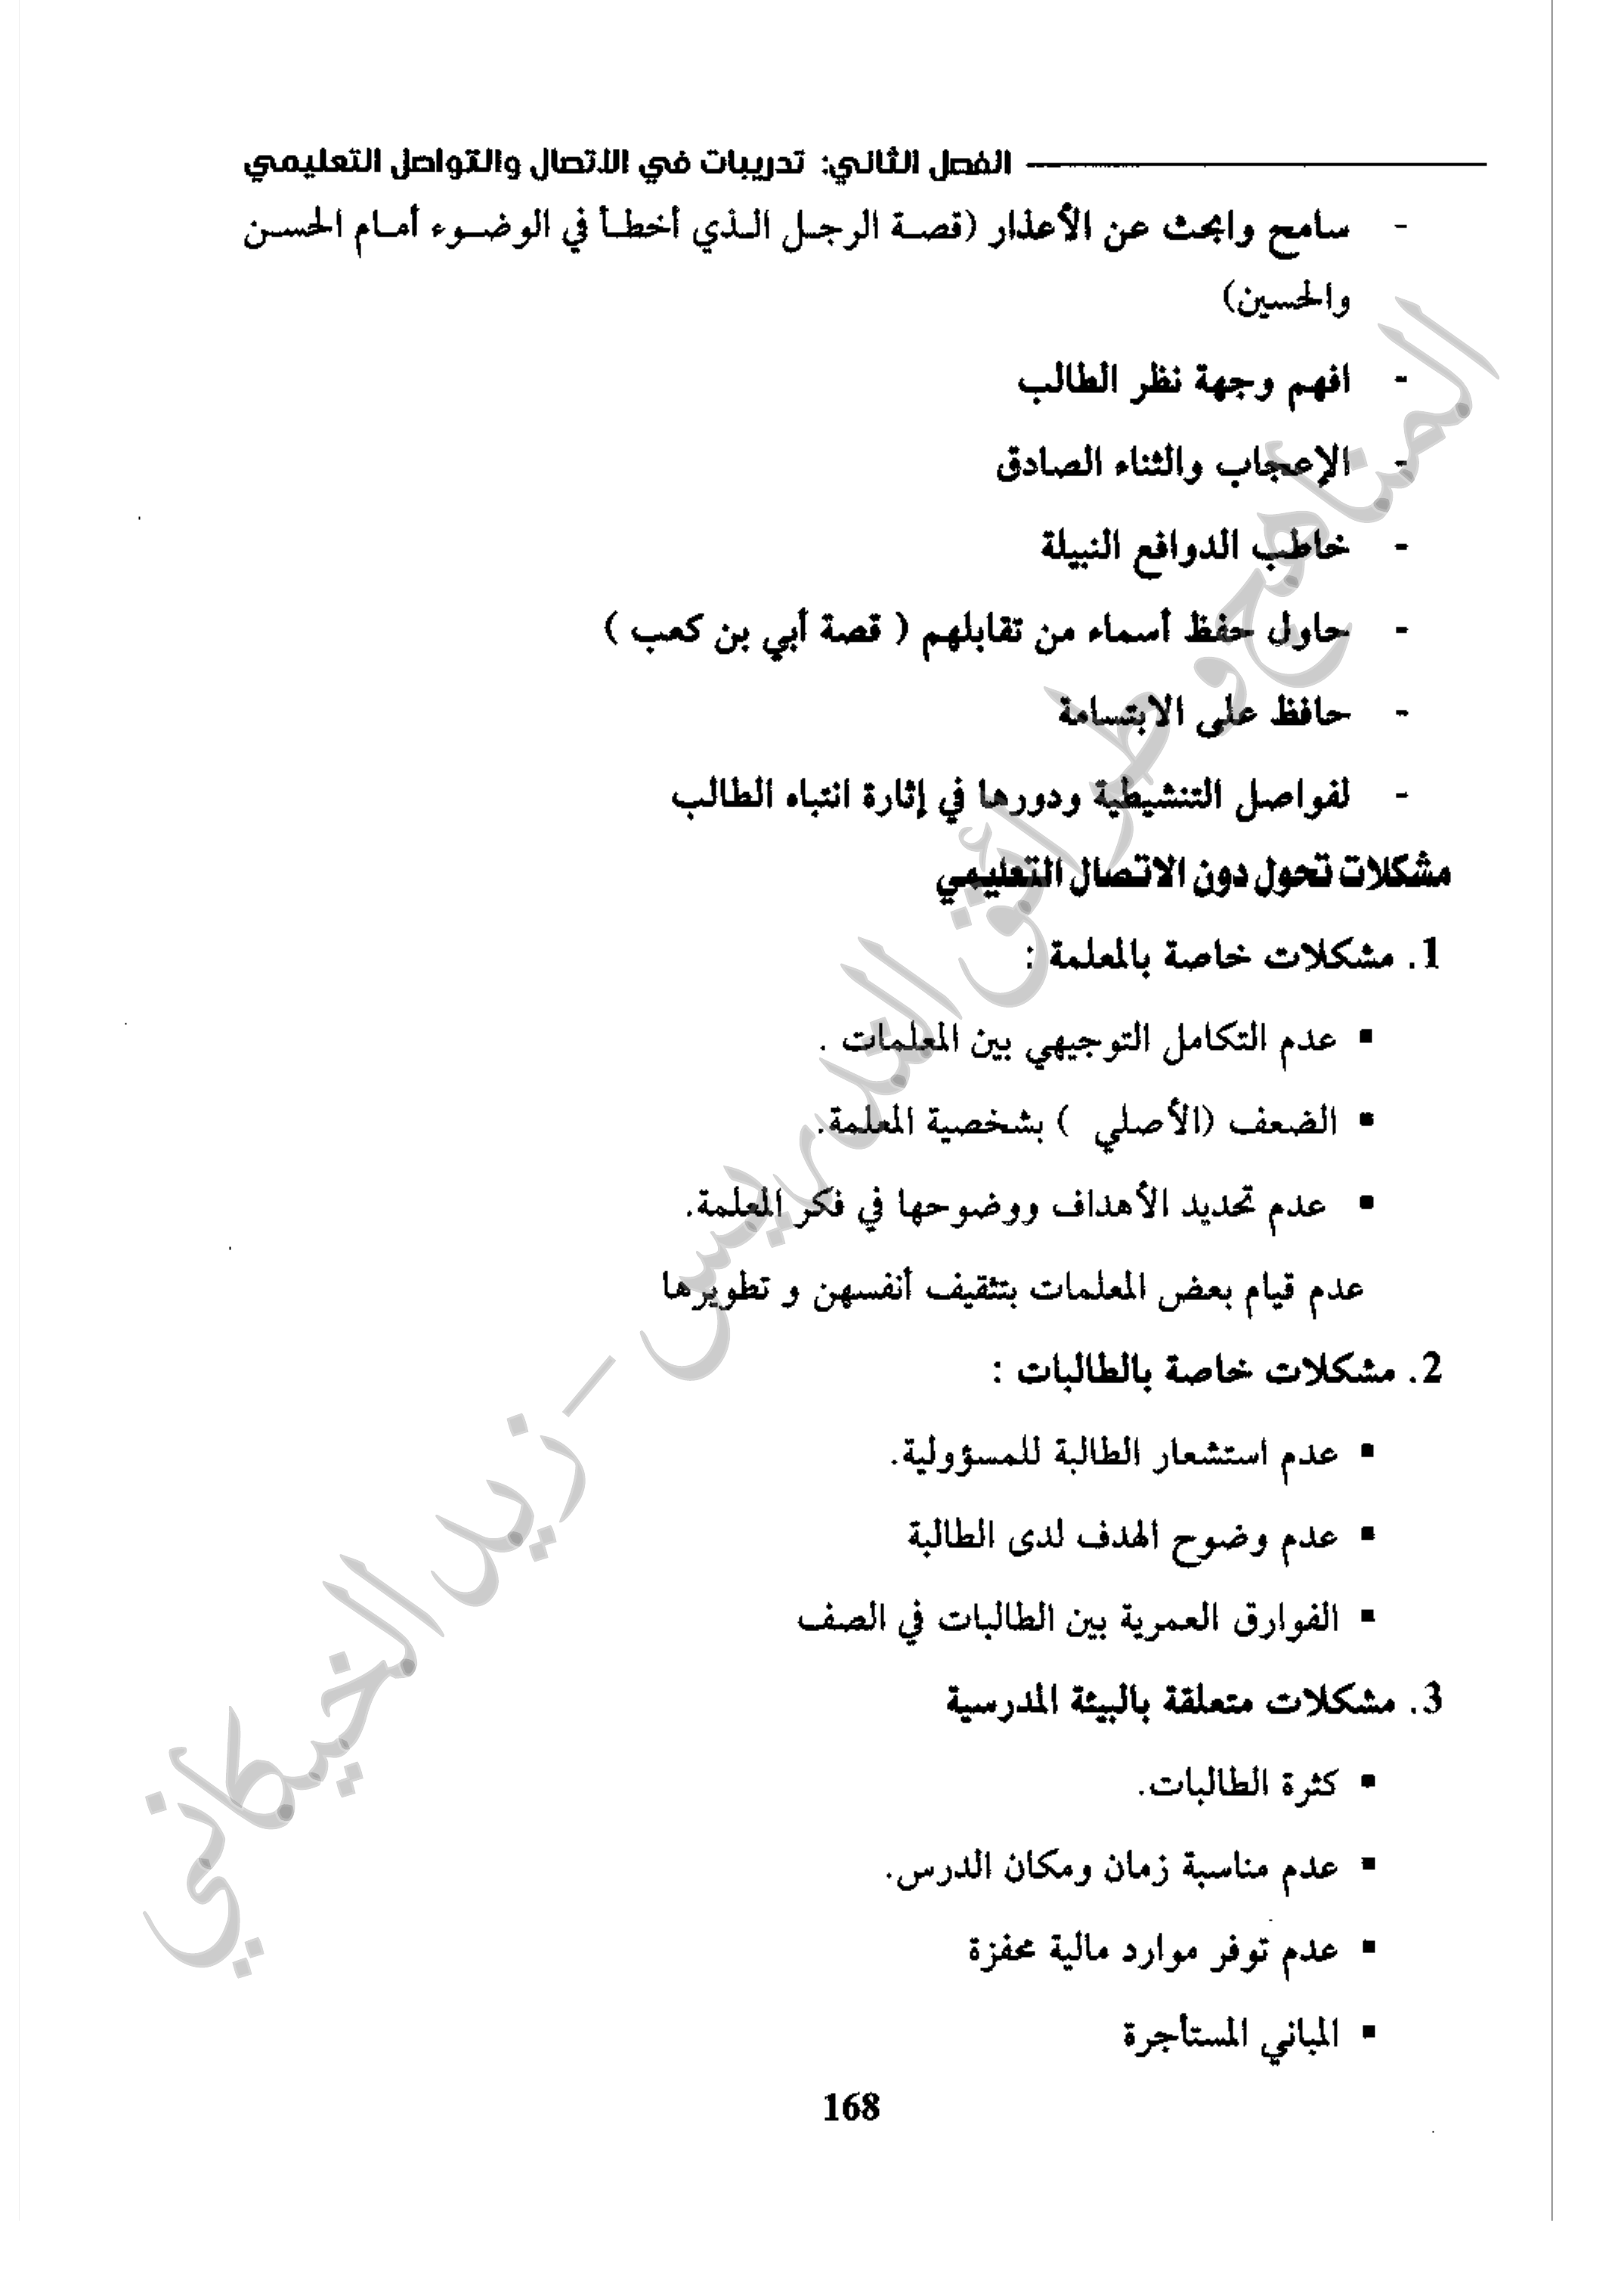 الفصل الثاني: تدريبات في الاتصال والتواصل التعليمي
- سامح وابحث عن الأعذار (قصة الرجل الذي أخطأ في الوضوء أمام الحسن
والحسين)
- افهم وجهة نظر الطالب
- الإعجاب والثناء الصادق
- خاطب الدوافع النبيلة
- حاول حفظ أسماء من تقابلهم ( قصة أبي بن كعب )
- حافظ على الابتسامة
- لفواصل التنشيطية ودورها في إثارة انتباه الطالب
مشكلات تحول دون الاتصال التعليمي
1. مشكلات خاصة بالمعلمة :
▪ عدم التكامل التوجيهي بين المعلمات .
▪ الضعف (الأصلي ) بشخصية المعلمة.
▪ عدم تحديد الأهداف ووضوحها في فكر المعلمة.
عدم قيام بعض المعلمات بتثقيف أنفسهن و تطويرها
2. مشكلات خاصة بالطالبات :
▪ عدم استشعار الطالبة للمسؤولية.
▪ عدم وضوح الهدف لدى الطالبة
▪ الفوارق العمرية بين الطالبات في الصف
3. مشكلات متعلقة بالبيئة المدرسية
▪ كثرة الطالبات.
▪ عدم مناسبة زمان ومكان الدرس.
▪ عدم توفر موارد مالية محفزة
▪ المباني المستأجرة
168
المناهج وطرائق التدريس - زيد الخيكاني